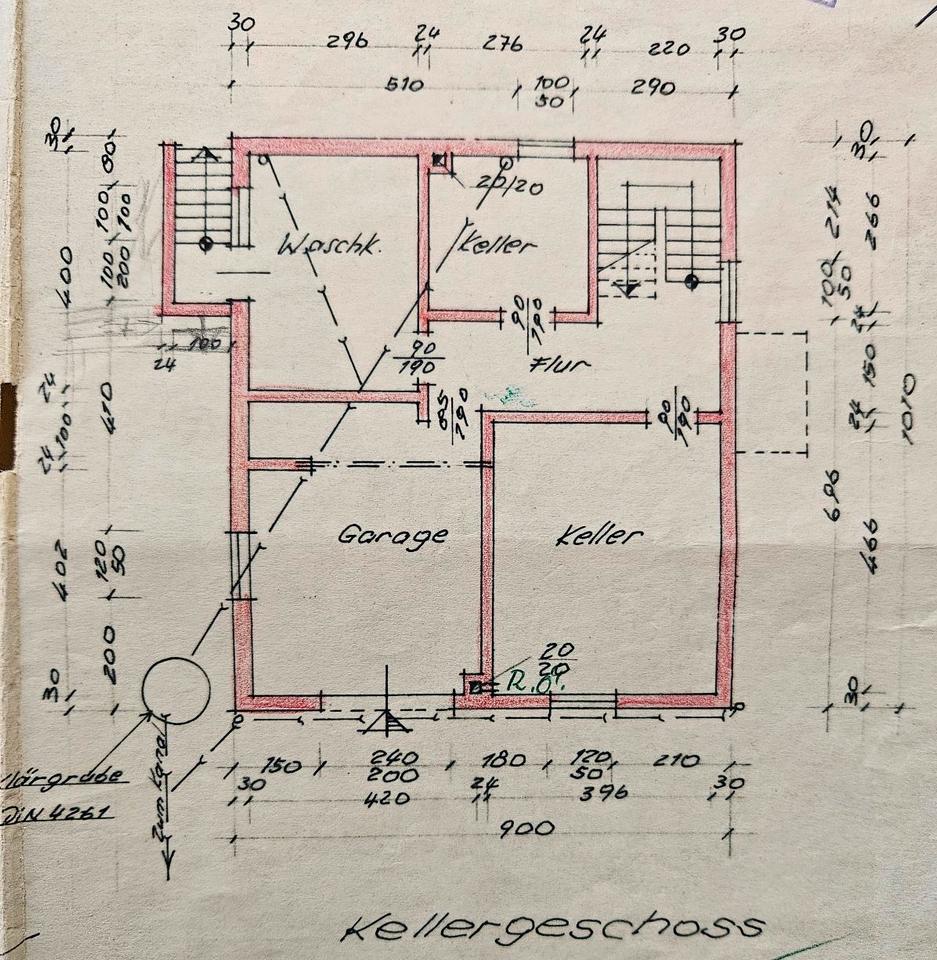 30 296 24 276 24 220 30
510 100/50 290
30
400
24
100
24
402
30
80
100 100
100 200
410
120
50
200
24 100
Waschk.
20/20
Keller
90/190
90/190
Flur
90/190
Garage
Keller
20/20
R.Ö.
30
266
24
150
24
466
30
214
100
50
696
1010
150 240/200 180 120/50 210
30 420 24 396 30
900
DIN 4261
Zum Kanal
Kellergeschoss